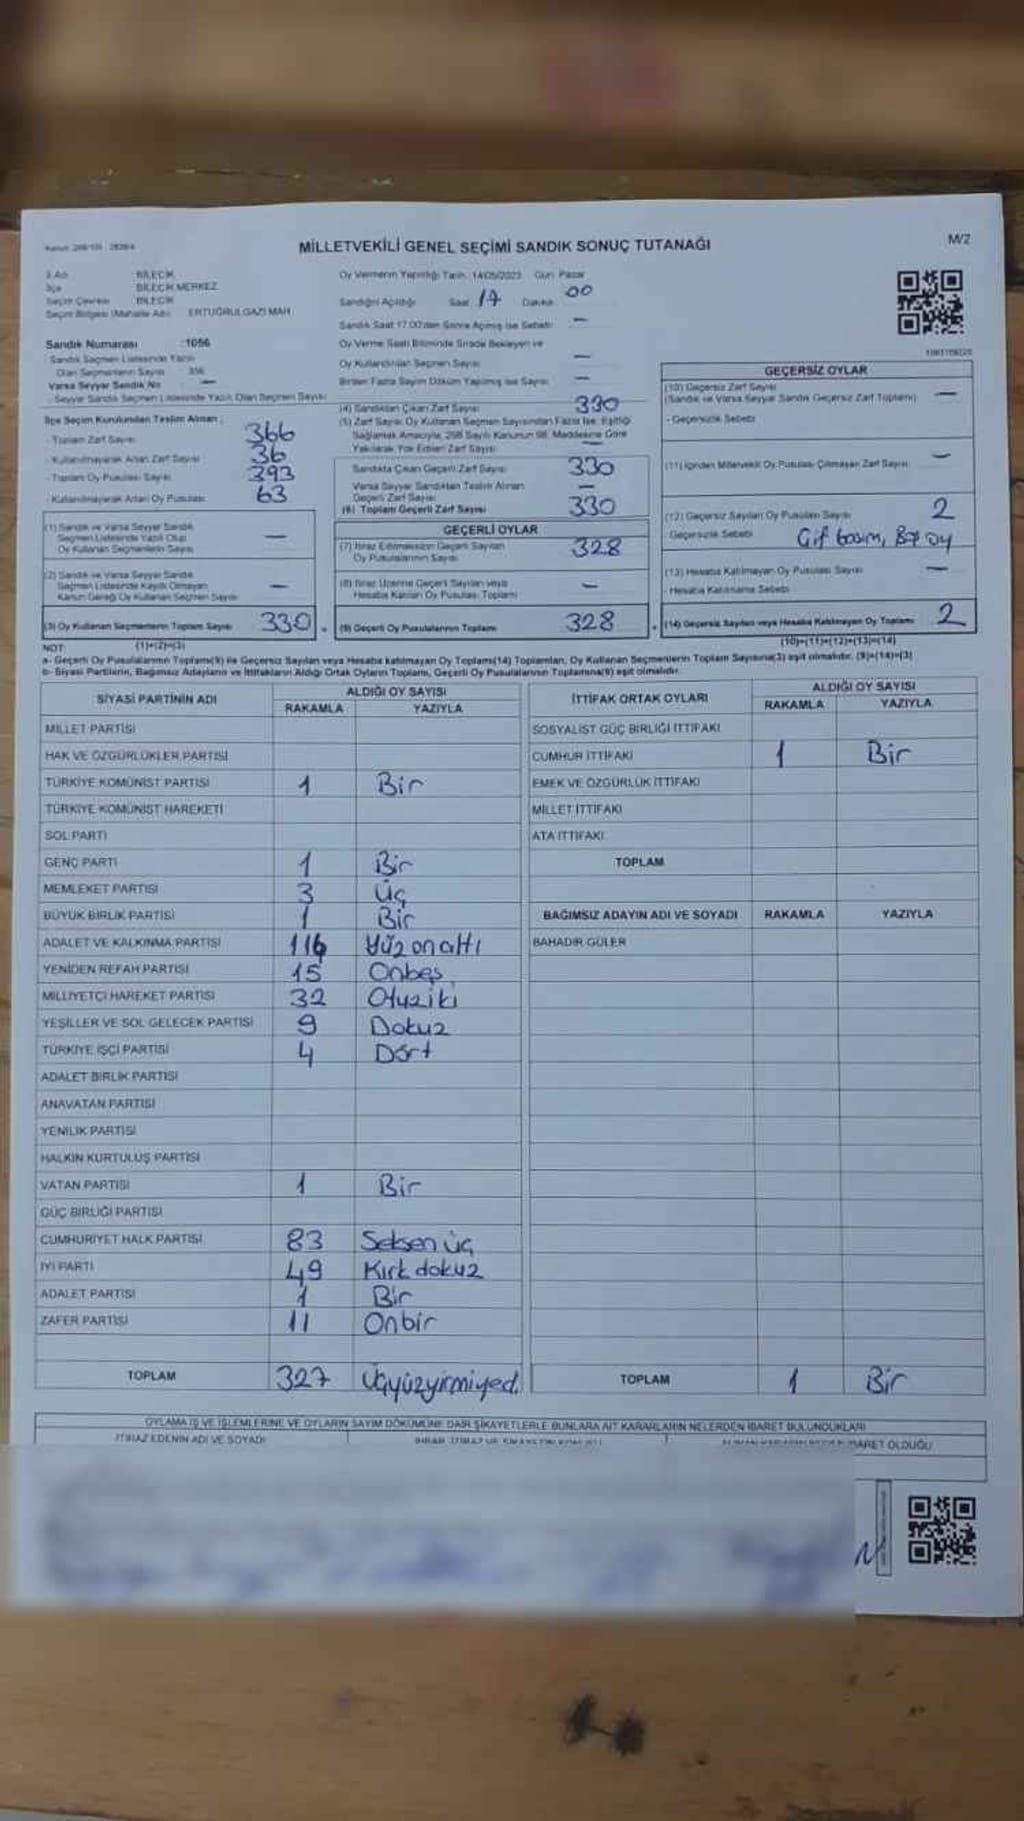 MİLLETVEKİLİ GENEL SEÇİMİ SANDIK SONUÇ TUTANAĞI
M/2
İl Adı BİLECİK
İlçe BİLECİK MERKEZ
Seçim Çevresi BİLECİK
Seçim Bölgesi (Mahalle Adı) ERTUĞRULGAZİ MAH
Sandık Numarası :1056
Sandık Seçmen Listesinde Yazılı
Olan Seçmenlerin Sayısı 356
Varsa Seyyar Sandık No —
- Seyyar Sandık Seçmen Listesinde Yazılı Olan Seçmen Sayısı
İlçe Seçim Kurulundan Teslim Alınan ;
- Toplam Zarf Sayısı 366
- Kullanılmayarak Artan Zarf Sayısı 36
- Toplam Oy Pusulası Sayısı 393
- Kullanılmayarak Artan Oy Pusulası 63
(1) Sandık ve Varsa Seyyar Sandık
Seçmen Listesinde Yazılı Olup
Oy Kullanan Seçmenlerin Sayısı —
(2) Sandık ve Varsa Seyyar Sandık
Seçmen Listesinde Kayıtlı Olmayan
Kanun Gereği Oy Kullanan Seçmen Sayısı —
(3) Oy Kullanan Seçmenlerin Toplam Sayısı 330
(1)+(2)=(3)
Oy Vermenin Yapıldığı Tarih: 14/05/2023 Gün: Pazar
Sandığın Açıldığı Saat: 17 Dakika: 00
Sandık Saat 17:00'den Sonra Açılmış İse Sebebi: —
Oy Verme Saati Bitiminde Sırada Bekleyen ve
Oy Kullandırılan Seçmen Sayısı —
Birden Fazla Sayım Döküm Yapılmış İse Sayısı —
(4) Sandıktan Çıkan Zarf Sayısı 330
(5) Zarf Sayısı Oy Kullanan Seçmen Sayısından Fazla İse, Eşitliği
Sağlamak Amacıyla, 298 Sayılı Kanunun 98. Maddesine Göre
Yakılarak Yok Edilen Zarf Sayısı —
Sandıkta Çıkan Geçerli Zarf Sayısı 330
Varsa Seyyar Sandıktan Teslim Alınan
Geçerli Zarf Sayısı —
(6) Toplam Geçerli Zarf Sayısı 330
GEÇERLİ OYLAR
(7) İtiraz Edilmeksizin Geçerli Sayılan
Oy Pusulalarının Sayısı 328
(8) İtiraz Üzerine Geçerli Sayılan veya
Hesaba Katılan Oy Pusulası Toplamı —
(9) Geçerli Oy Pusulalarının Toplamı 328
GEÇERSİZ OYLAR
(10) Geçersiz Zarf Sayısı
(Sandık ve Varsa Seyyar Sandık Geçersiz Zarf Toplamı) —
- Geçersizlik Sebebi
(11) İçinden Milletvekili Oy Pusulası Çıkmayan Zarf Sayısı —
(12) Geçersiz Sayılan Oy Pusulası Sayısı 2
Geçersizlik Sebebi Çif basım, Boş oy
(13) Hesaba Katılmayan Oy Pusulası Sayısı —
- Hesaba Katılmama Sebebi
(14) Geçersiz Sayılan veya Hesaba Katılmayan Oy Toplamı 2
(10)+(11)+(12)+(13)=(14)
NOT:
a- Geçerli Oy Pusulalarının Toplamı(9) ile Geçersiz Sayılan veya Hesaba katılmayan Oy Toplamı(14) Toplamları, Oy Kullanan Seçmenlerin Toplam Sayısına(3) eşit olmalıdır. (9)+(14)=(3)
b- Siyasi Partilerin, Bağımsız Adayların ve İttifakların Aldığı Oyların Toplamı, Geçerli Oy Pusulalarının Toplamına(9) eşit olmalıdır.
SİYASİ PARTİNİN ADI ALDIĞI OY SAYISI
RAKAMLA YAZIYLA
MİLLET PARTİSİ
HAK VE ÖZGÜRLÜKLER PARTİSİ
TÜRKİYE KOMÜNİST PARTİSİ 1 Bir
TÜRKİYE KOMÜNİST HAREKETİ
SOL PARTİ
GENÇ PARTİ 1 Bir
MEMLEKET PARTİSİ 3 Üç
BÜYÜK BİRLİK PARTİSİ 1 Bir
ADALET VE KALKINMA PARTİSİ 116 Yüz onaltı
YENİDEN REFAH PARTİSİ 15 Onbeş
MİLLİYETÇİ HAREKET PARTİSİ 32 Otuziki
YEŞİLLER VE SOL GELECEK PARTİSİ 9 Dokuz
TÜRKİYE İŞÇİ PARTİSİ 4 Dört
ADALET BİRLİK PARTİSİ
ANAVATAN PARTİSİ
YENİLİK PARTİSİ
HALKIN KURTULUŞ PARTİSİ
VATAN PARTİSİ 1 Bir
GÜÇ BİRLİĞİ PARTİSİ
CUMHURİYET HALK PARTİSİ 83 Seksen üç
İYİ PARTİ 49 Kırk dokuz
ADALET PARTİSİ 1 Bir
ZAFER PARTİSİ 11 Onbir
TOPLAM 327 Üçyüzyirmiyed.
İTTİFAK ORTAK OYLARI ALDIĞI OY SAYISI
RAKAMLA YAZIYLA
SOSYALİST GÜÇ BİRLİĞİ İTTİFAKI
CUMHUR İTTİFAKI 1 Bir
EMEK VE ÖZGÜRLÜK İTTİFAKI
MİLLET İTTİFAKI
ATA İTTİFAKI
TOPLAM
BAĞIMSIZ ADAYIN ADI VE SOYADI RAKAMLA YAZIYLA
BAHADIR GÜLER
TOPLAM 1 Bir
OYLAMA İŞ VE İŞLEMLERİNE VE OYLARIN SAYIM DÖKÜMÜNE DAİR ŞİKAYETLERLE BUNLARA AİT KARARLARIN NELERDEN İBARET BULUNDUKLARI
İTİRAZ EDENİN ADI VE SOYADI